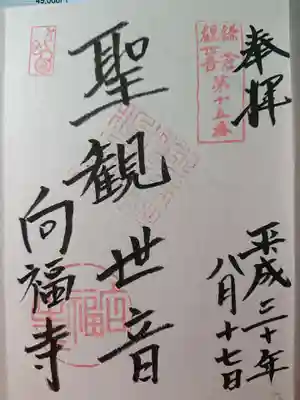 奉拝
鎌倉
観音
第十五番
平成三十年
八月十七日
聖観世音
向福寺